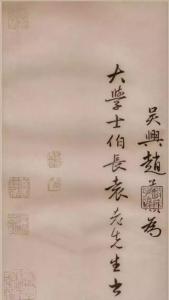 吳興趙為
大學士伯長袁老先生書